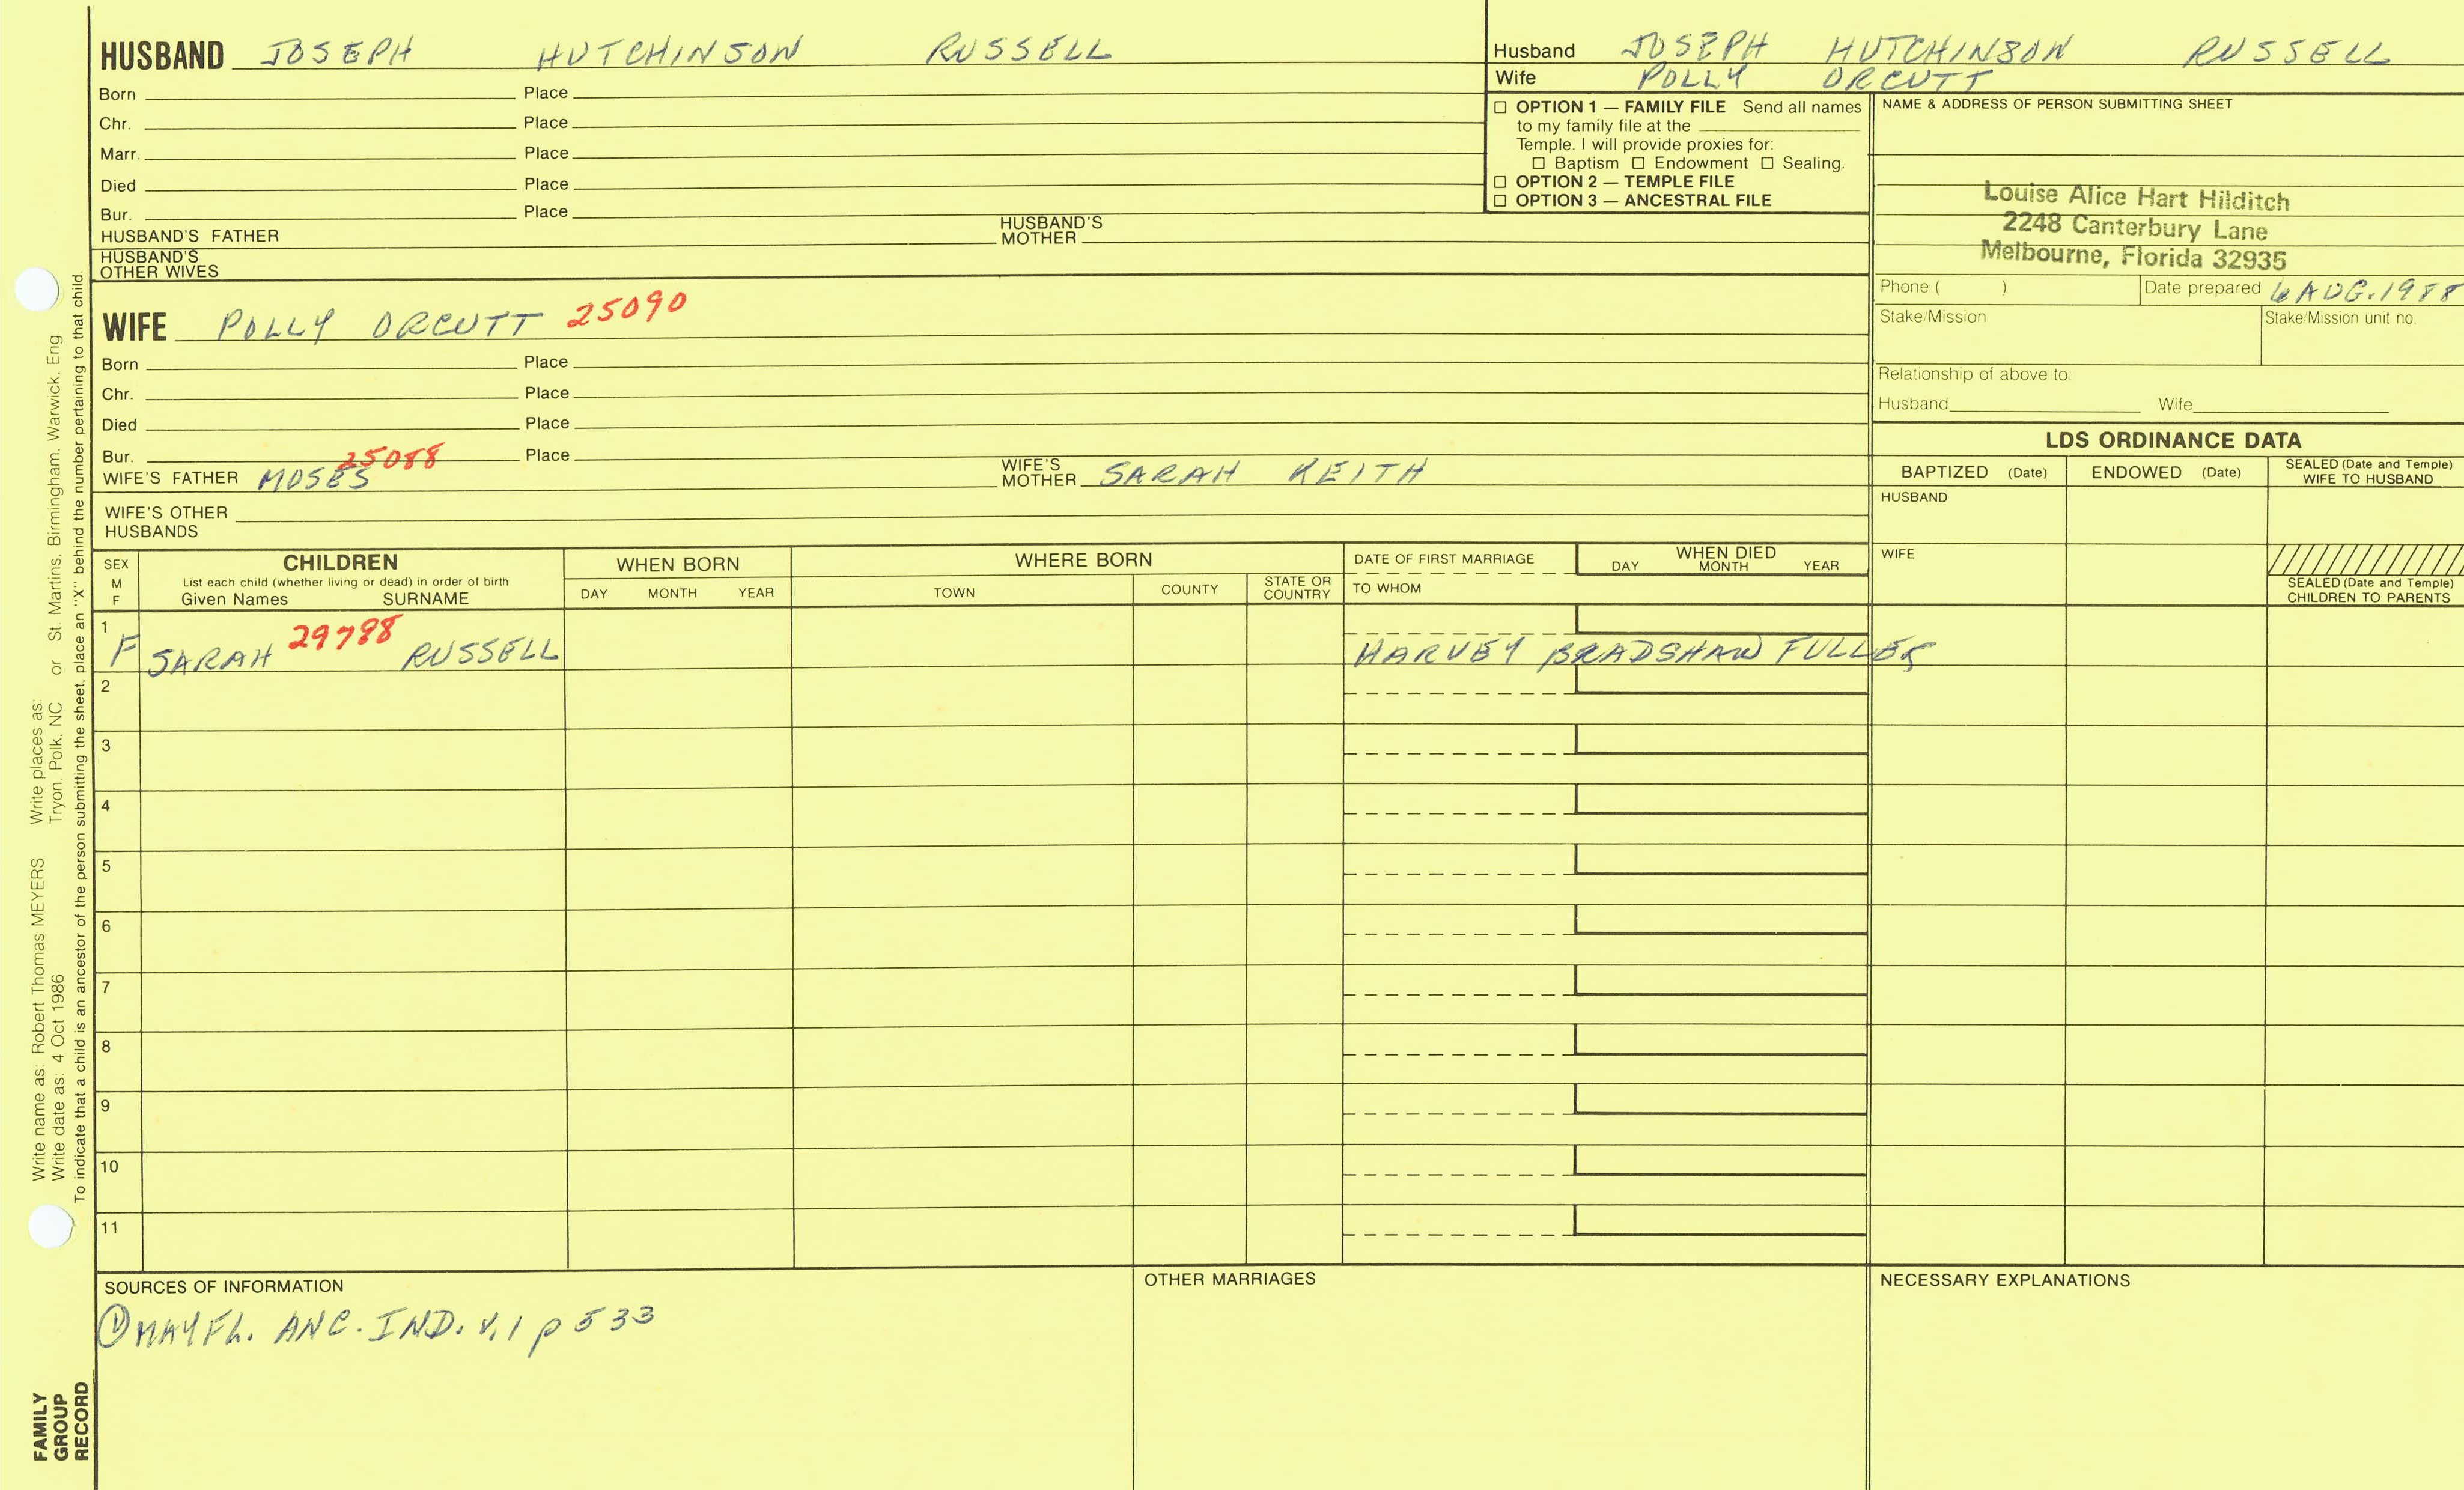 HUSBAND JOSEPH HUTCHINSON RUSSELL
Born Place
Chr. Place
Marr. Place
Died Place
Bur. Place
HUSBAND'S FATHER HUSBAND'S MOTHER
HUSBAND'S OTHER WIVES
WIFE POLLY ORCUTT 25090
Born Place
Chr. Place
Died Place
Bur. Place
25088
WIFE'S FATHER MOSES WIFE'S MOTHER SARAH KEITH
WIFE'S OTHER HUSBANDS
Husband JOSEPH HUTCHINSON RUSSELL
Wife POLLY ORCUTT
☐ OPTION 1 — FAMILY FILE Send all names
to my family file at the
Temple. I will provide proxies for:
☐ Baptism ☐ Endowment ☐ Sealing.
☐ OPTION 2 — TEMPLE FILE
☐ OPTION 3 — ANCESTRAL FILE
NAME & ADDRESS OF PERSON SUBMITTING SHEET
Louise Alice Hart Hilditch
2248 Canterbury Lane
Melbourne, Florida 32935
Phone ( ) Date prepared 6 AUG. 1988
Stake/Mission Stake/Mission unit no.
Relationship of above to:
Husband Wife
LDS ORDINANCE DATA
BAPTIZED (Date) ENDOWED (Date) SEALED (Date and Temple) WIFE TO HUSBAND
HUSBAND
WIFE
SEALED (Date and Temple) CHILDREN TO PARENTS
SEX M F
CHILDREN
List each child (whether living or dead) in order of birth
Given Names SURNAME
WHEN BORN
DAY MONTH YEAR
WHERE BORN
TOWN COUNTY STATE OR COUNTRY
DATE OF FIRST MARRIAGE
TO WHOM
WHEN DIED
DAY MONTH YEAR
1 F SARAH 29798 RUSSELL HARVEY BRADSHAW FULLER
2
3
4
5
6
7
8
9
10
11
SOURCES OF INFORMATION
① MAYFL. ANC. IND. V.1 p 533
OTHER MARRIAGES
NECESSARY EXPLANATIONS
Write name as: Robert Thomas MEYERS Write places as:
Write date as: 4 Oct 1986 Tryon, Polk, NC or St. Martins, Birmingham, Warwick, Eng.
To indicate that a child is an ancestor of the person submitting the sheet, place an "X" behind the number pertaining to that child.
FAMILY
GROUP
RECORD